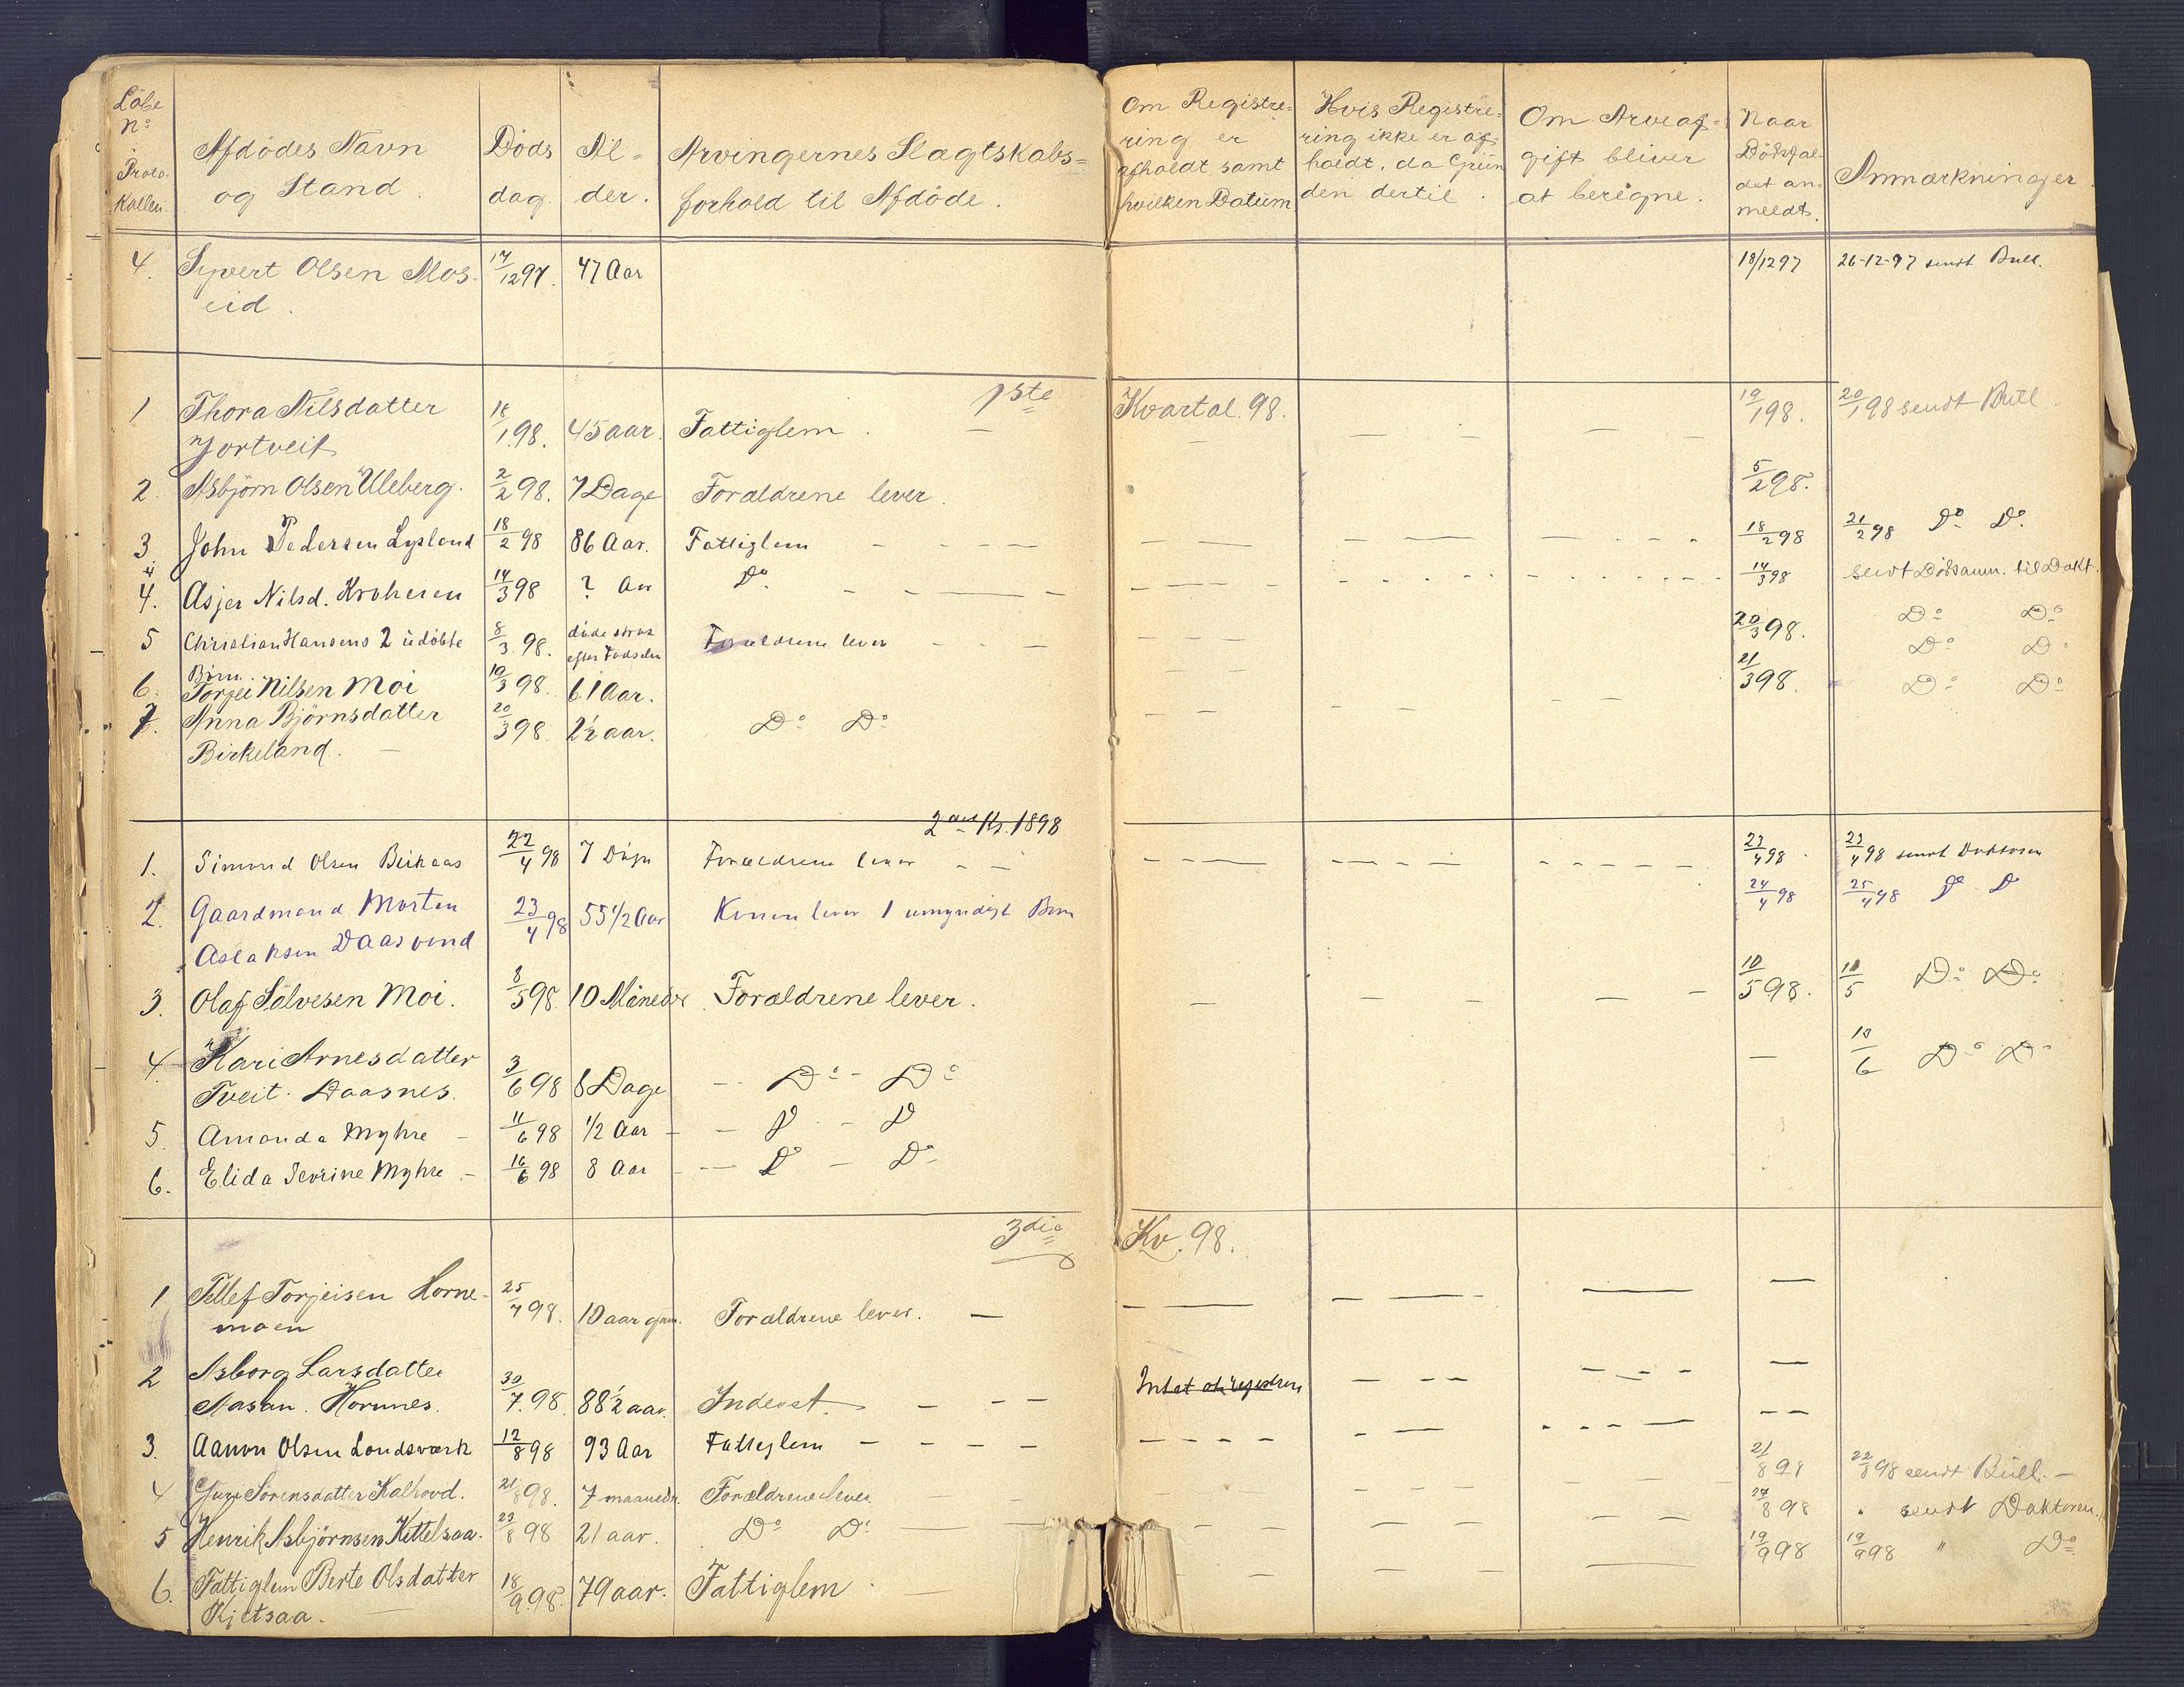 Löbe Nº i Protokollen. | Afdödes Navn og Stand. | Döds dag. | Al- der. | Arvingernes Slagtskabs- forhold til Afdöde. | Om Registre- ring er afholdt samt hvilken Datum | Hvis Registre- ring ikke er af- holdt, da Grun den dertil. | Om Arveaf- gift bliver at beregne. | Naar Dödsfal- det an- meldt. | Anmærkninger.
4. Syvert Olsen Mos- 17/12 97. 47 Aar 18/12 97 26-12-97 sendt Bull.
eid.
1ste Kvartal. 98.
1 Thora Nilsdatter 16/1 98. 45 aar. Fattiglem. 19/1 98. 20/1 98 sendt Bull.
Hortveit
2. Asbjörn Olsen Uleberg. 2/2 98. 7 Dage Foraldrene lever. 5/2 98.
3. John Pedersen Lysland 18/2 98 86 Aar. Fattiglem 18/2 98 21/2 98 Dº Dº
4. Asjer Nilsd. 14/3 98 ? Aar Dº 14/3 98 sendt Dödsanm. til Dokt.
5 Christian Hansens 2 udöbte 8/3 98. döde strax efter Födselen Forældrene lever 20/3 98. Dº Dº
Börn.
6. Torjei Nilsen Moi 19/3 98. 61 Aar. 21/3 98. Dº Dº
7. Anna Björnsdatter 20/3 98. 2½ aar. Dº Dº Dº Dº
Birkeland.
2det Kv. 1898
1. Simund Olsen Birkaas 22/4 98 7 Døgn Foraeldrene lever 23/4 98 23/4 98 sendt Doktoren
2. Gaardmand Morten 23/4 98 55 1/2 Aar Konen lever 1 umyndigt Barn 24/4 98 25/4 98 Dº D
Aslaksen Daasvand
3. Olaf Salvesen Moi. 8/5 98 10 Måneder Foraldrene lever. 10/5 98. 10/5 Dº Dº
4. Kari Arnesdatter 3/6 98 8 Dage Dº Dº 10/6 Dº Dº
Tveit. Daasnes.
5. Amanda Myhre 11/6 98 1/2 Aar D D
6. Elida Sevrine Myhre 16/6 98 8 Aar Dº Dº
3die Kv. 98.
1 Tellef Torjeisen Horne- 25/7 98. 10 aar gam. Foraldrene lever.
moen
2 Asborg Larsdatter 30/7. 98. 88½ aar. Inderst. Intet at registrere
Aasan. Hornnes.
3. Aanon Olsen Landsværk 12/8 98 93 Aar Fattiglem
4 Guri Sörensdatter Kalhovd. 21/8 98. 7 maaneder. Foraldrene lever 21/8 98 22/8 98 sendt Bull.
5 Henrik Asbjörnsen Kittelsaa. 23/8 98 21 aar. Dº Dº 27/8 98 " sendt Doktoren.
6. Fattiglem Berte Olsdatter 18/9. 98. 79 aar. Fattiglem 19/9 98 19/9 98 " Dº
Kjetsaa.